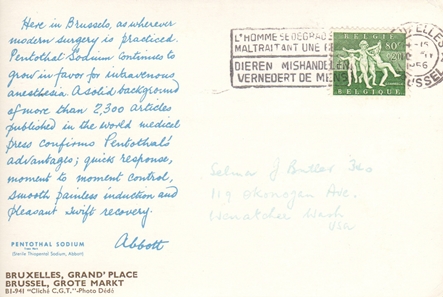 Here in Brussels, as wherever
modern surgery is practiced.
Pentothal Sodium continues to
grow in favor for intravenous
anesthesia. A solid background
of more than 2,300 articles
published in the world medical
press confirms Pentothal's
advantages; quick response,
moment to moment control,
smooth painless induction and
pleasant swift recovery.
Abbott
PENTOTHAL SODIUM
(Sterile Thiopental Sodium, Abbott)
BRUXELLES, GRAND' PLACE
BRUSSEL, GROTE MARKT
B1-941 "Cliché C.G.T."-Photo Dédé
L'HOMME SE DEGRADE
MALTRAITANT UNE
DIEREN MISHANDELEN
VERNEDERT DE MENS
BELGIE
80c
20c
BELGIQUE
Selmar J Butler
119 Okanogan Ave.
Wenatchee Wash
USA